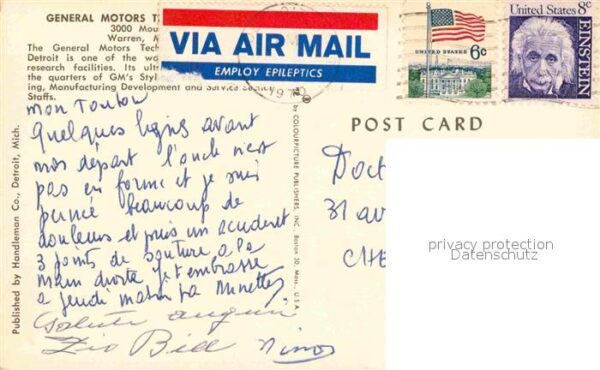 GENERAL MOTORS
3000
Warren,
The General Motors Tech
Detroit is one of the
research facilities. Its
the quarters of GM's Styl
ing, Manufacturing Development and Service Section
Staffs.
VIA AIR MAIL
EMPLOY EPILEPTICS
1970
UNITED STATES
6c
United States 8c
EINSTEIN
POST CARD
Published by Handleman Co., Detroit, Mich.
by COLOURPICTURE PUBLISHERS, INC., Boston 30, Mass., U.S.A.
mon Toutou
Quelques lignes avant
mos départ l'oncle n'est
pas en forme et je suis
percée beaucoup de
douleurs et puis un accident
3 points de suture a la
main droite je t'embrasse
a jeudi matin ta Minette
Saluti auguri
Zio Bill Ninos
Doct
31 av
CHE
privacy protection
Datenschutz